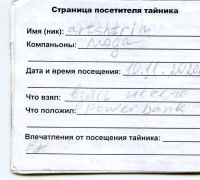 Страница посетителя тайника
Имя (ник): artshtrih
Компаньоны: noga
Дата и время посещения: 10.11.2020
Что взял:
Что положил: powerbank
Впечатления от посещения тайника: